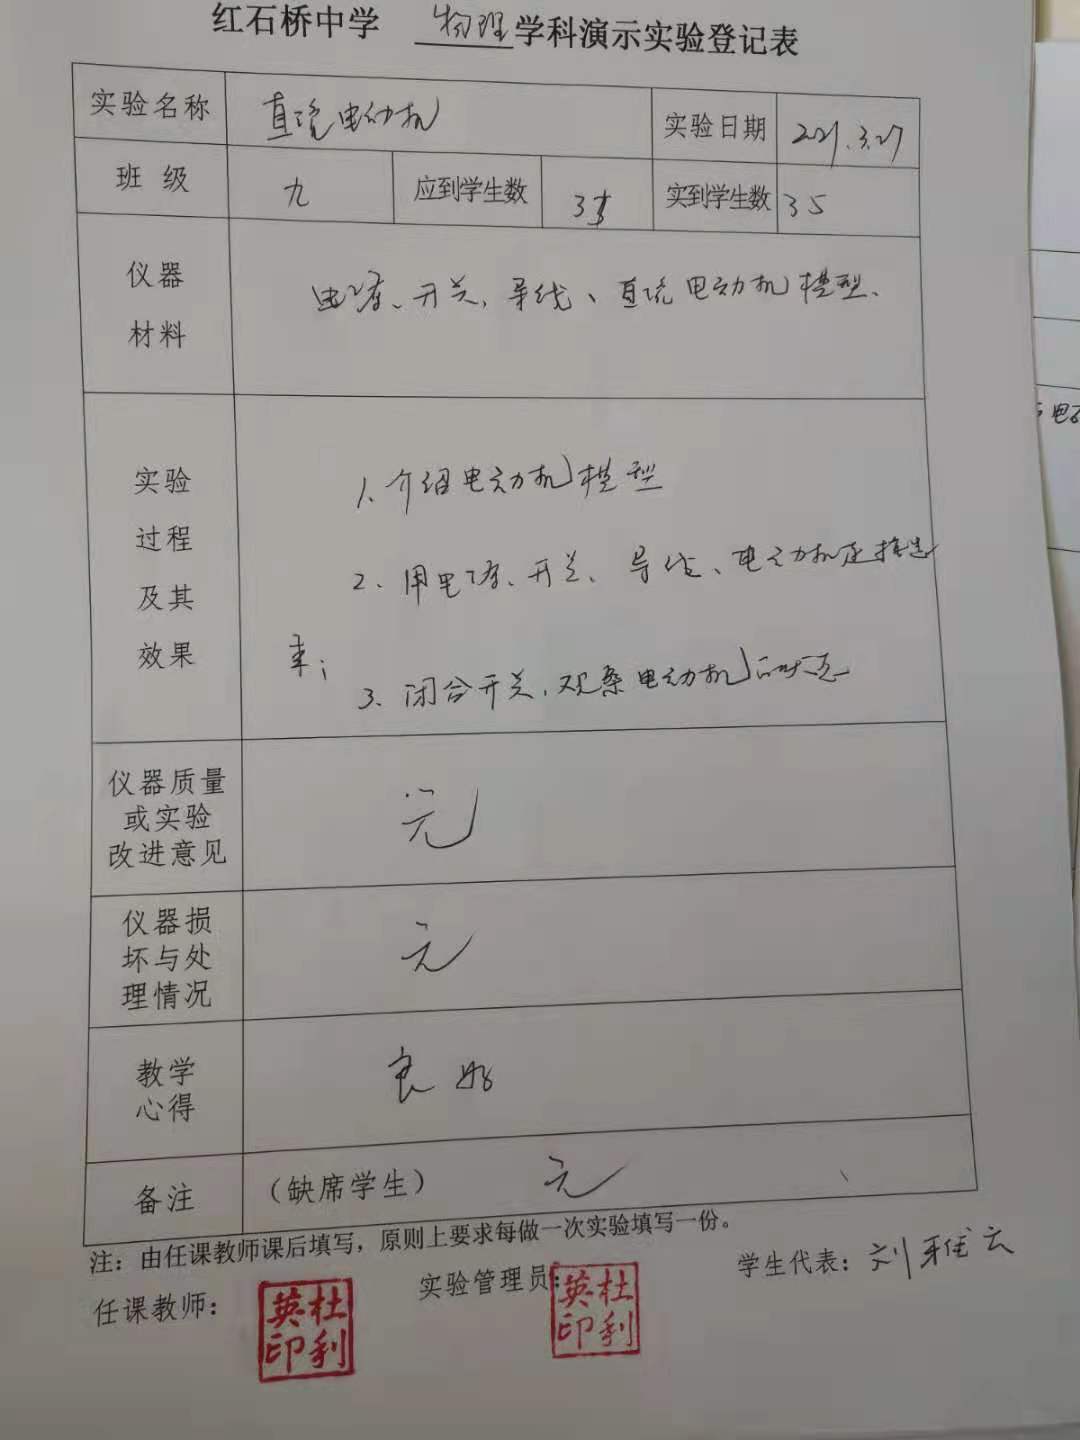 红石桥中学 物理学科演示实验登记表
实验名称 直流电动机 实验日期 2021.3.27
班级 九 应到学生数 35 实到学生数 35
仪器
材料
电源、开关、导线、直流电动机模型、
实验
过程
及其
效果
1、介绍电动机模型
2、用电源、开关、导线、电动机连接起
来;
3、闭合开关,观察电动机的状态
仪器质量
或实验
改进意见
无
仪器损
坏与处
理情况
无
教学
心得
良好
备注 (缺席学生) 无
注:由任课教师课后填写,原则上要求每做一次实验填写一份。
任课教师: 杜利英印 实验管理员: 杜利英印 学生代表:刘雅云
电